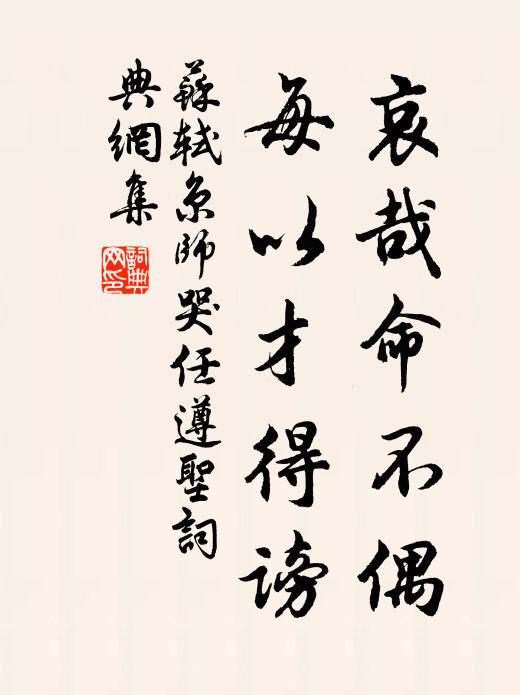 哀哉命不偶
每以才得謗
蘇軾京師哭任遵聖詞
典網集
詞典網印